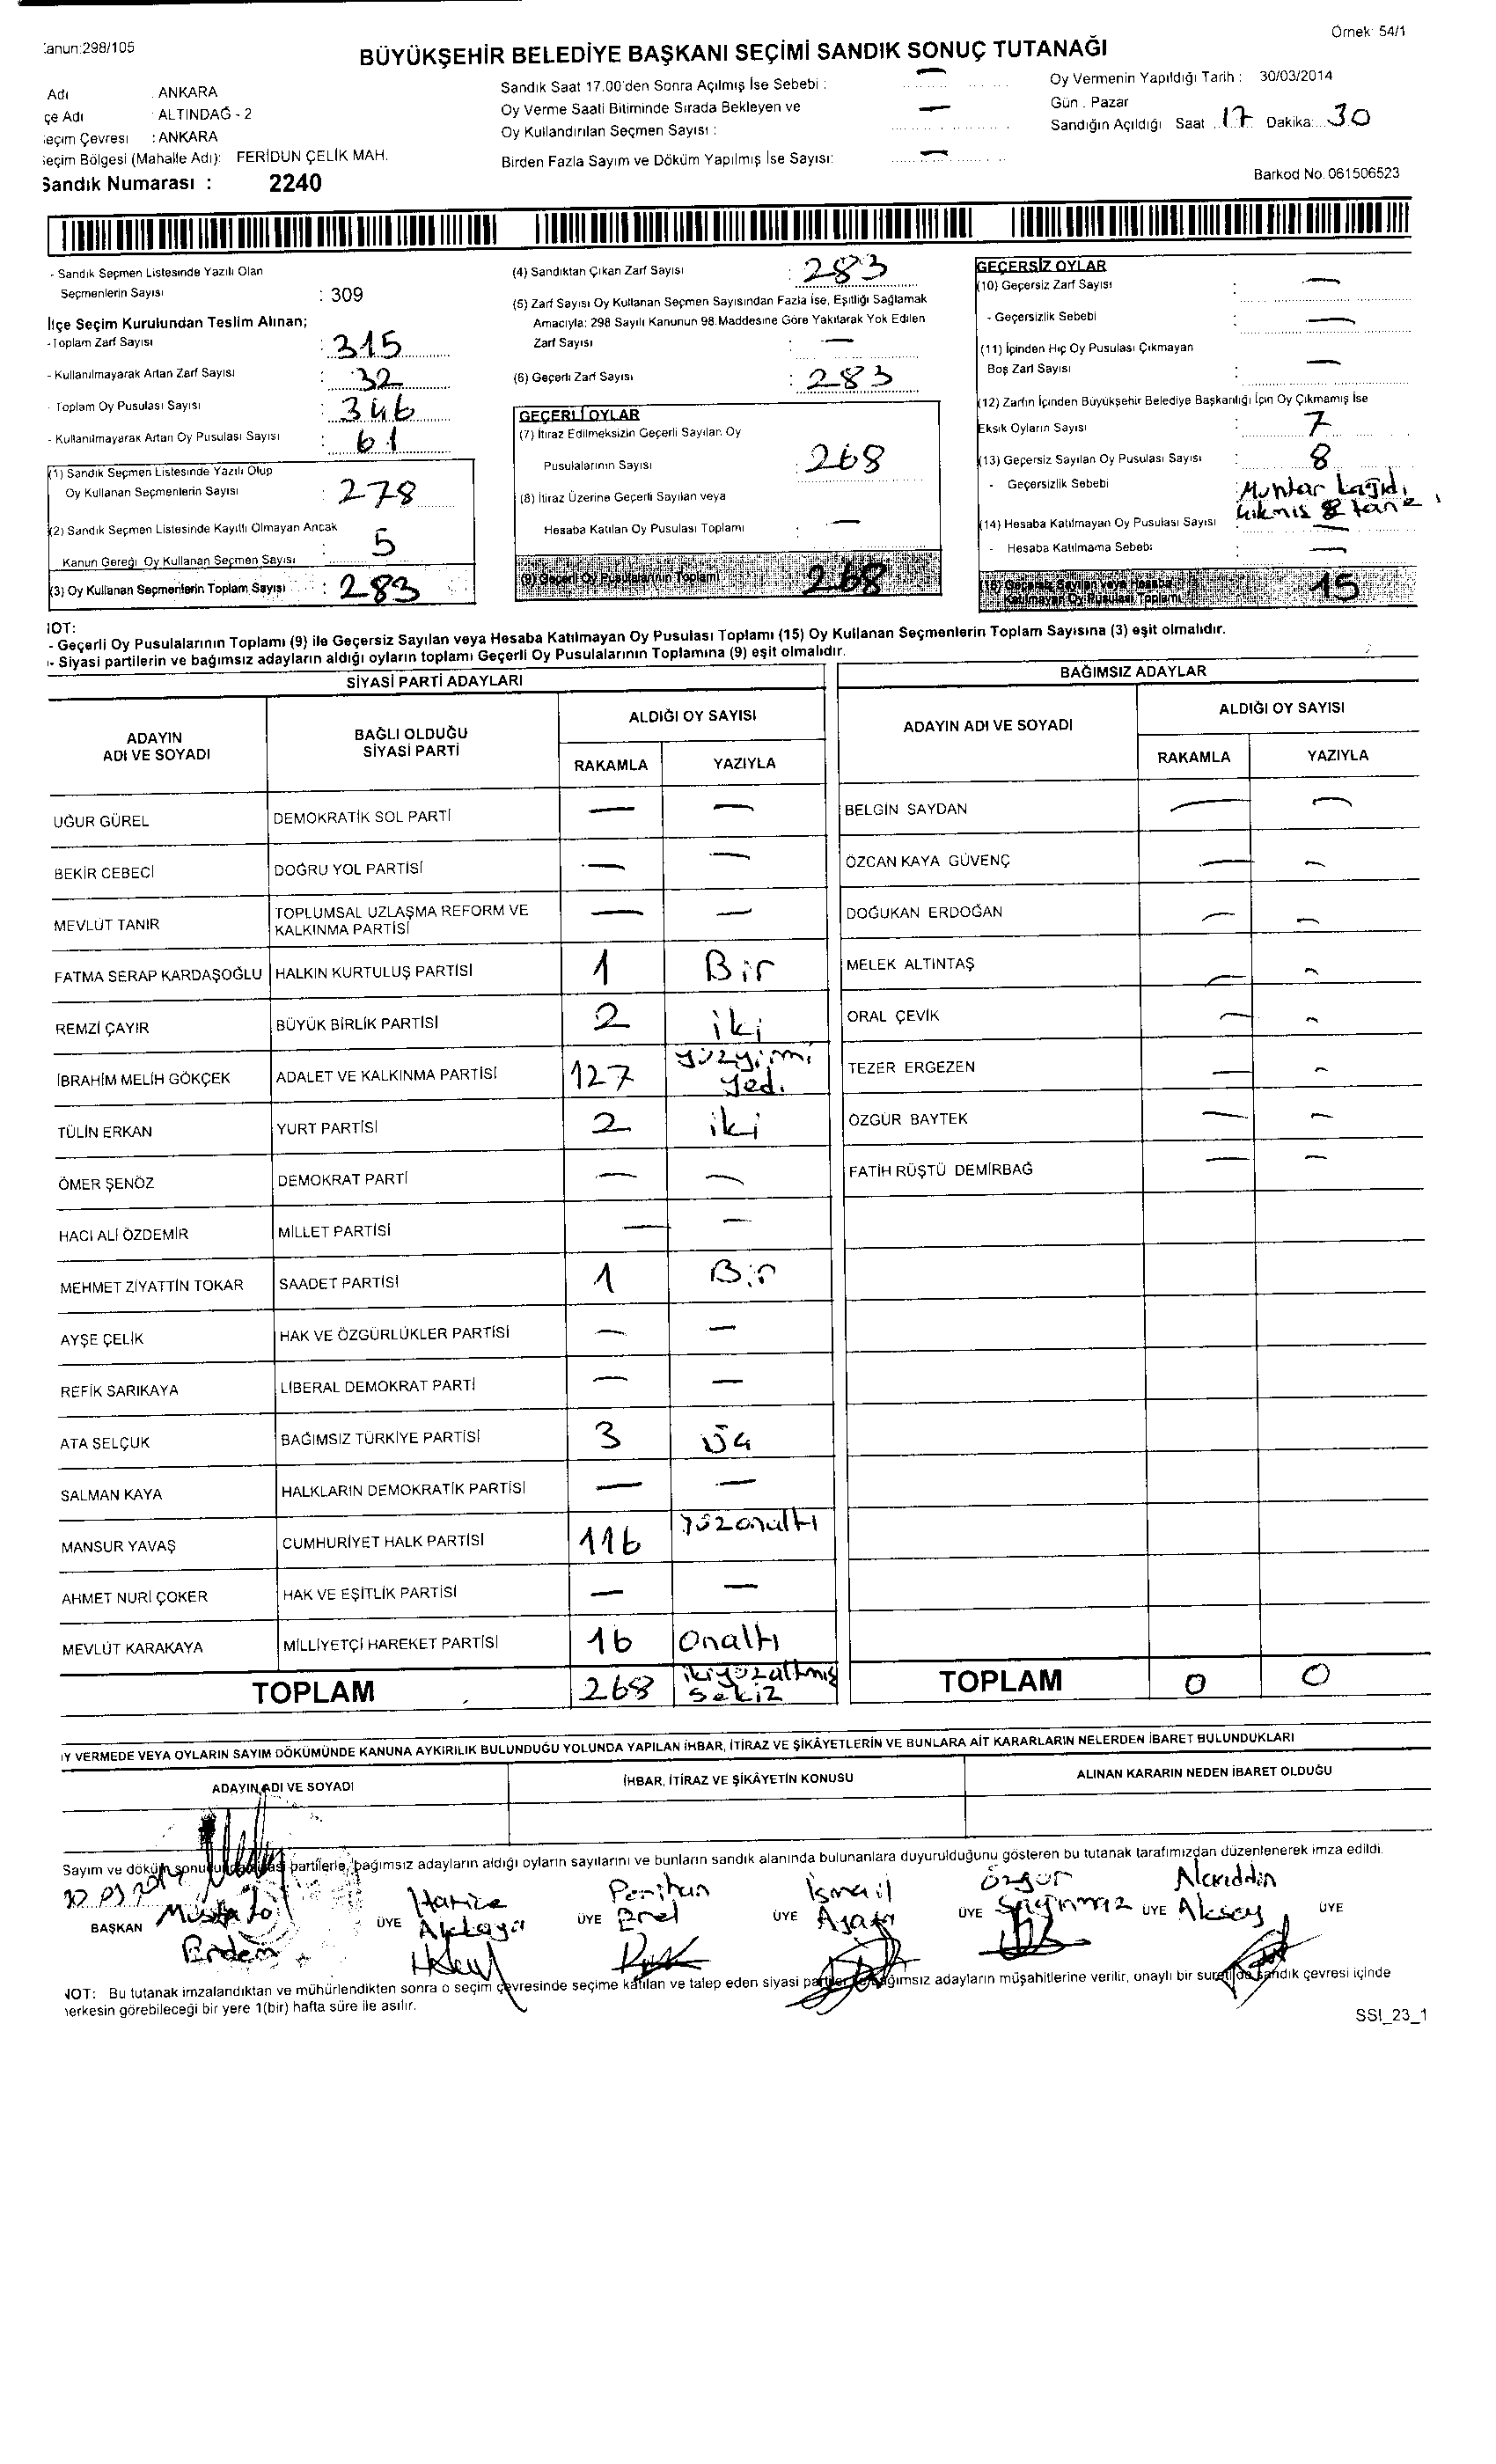 Kanun:298/105
Örnek: 54/1
BÜYÜKŞEHİR BELEDİYE BAŞKANI SEÇİMİ SANDIK SONUÇ TUTANAĞI
Adı : ANKARA
çe Adı : ALTINDAĞ - 2
eçim Çevresi : ANKARA
eçim Bölgesi (Mahalle Adı): FERİDUN ÇELİK MAH.
Sandık Numarası : 2240
Sandık Saat 17.00'den Sonra Açılmış İse Sebebi : —
Oy Verme Saati Bitiminde Sırada Bekleyen ve
Oy Kullandırılan Seçmen Sayısı : —
Birden Fazla Sayım ve Döküm Yapılmış İse Sayısı: —
Oy Vermenin Yapıldığı Tarih : 30/03/2014
Gün : Pazar
Sandığın Açıldığı Saat 17 Dakika: 30
Barkod No: 061506523
- Sandık Seçmen Listesinde Yazılı Olan
Seçmenlerin Sayısı : 309
İlçe Seçim Kurulundan Teslim Alınan;
-Toplam Zarf Sayısı : 315
- Kullanılmayarak Artan Zarf Sayısı : 32
- Toplam Oy Pusulası Sayısı : 346
- Kullanılmayarak Artan Oy Pusulası Sayısı : 61
(1) Sandık Seçmen Listesinde Yazılı Olup
Oy Kullanan Seçmenlerin Sayısı : 278
(2) Sandık Seçmen Listesinde Kayıtlı Olmayan Ancak
Kanun Gereği Oy Kullanan Seçmen Sayısı : 5
(3) Oy Kullanan Seçmenlerin Toplam Sayısı : 283
(4) Sandıktan Çıkan Zarf Sayısı : 283
(5) Zarf Sayısı Oy Kullanan Seçmen Sayısından Fazla İse, Eşitliği Sağlamak
Amacıyla: 298 Sayılı Kanunun 98.Maddesine Göre Yakılarak Yok Edilen
Zarf Sayısı : —
(6) Geçerli Zarf Sayısı : 283
GEÇERLİ OYLAR
(7) İtiraz Edilmeksizin Geçerli Sayılan Oy
Pusulalarının Sayısı : 268
(8) İtiraz Üzerine Geçerli Sayılan veya
Hesaba Katılan Oy Pusulası Toplamı : —
(9) Geçerli Oy Pusulalarının Toplamı 268
GEÇERSİZ OYLAR
(10) Geçersiz Zarf Sayısı : —
- Geçersizlik Sebebi : —
(11) İçinden Hiç Oy Pusulası Çıkmayan
Boş Zarf Sayısı : —
(12) Zarfın İçinden Büyükşehir Belediye Başkanlığı İçin Oy Çıkmamış İse
Eksik Oyların Sayısı : 7
(13) Geçersiz Sayılan Oy Pusulası Sayısı : 8
- Geçersizlik Sebebi Muhtar kağıdı
çıkmış 8 tane
(14) Hesaba Katılmayan Oy Pusulası Sayısı : —
- Hesaba Katılmama Sebebi : —
(15) Geçersiz Sayılan veya Hesaba
Katılmayan Oy Pusulası Toplamı 15
NOT:
- Geçerli Oy Pusulalarının Toplamı (9) ile Geçersiz Sayılan veya Hesaba Katılmayan Oy Pusulası Toplamı (15) Oy Kullanan Seçmenlerin Toplam Sayısına (3) eşit olmalıdır.
- Siyasi partilerin ve bağımsız adayların aldığı oyların toplamı Geçerli Oy Pusulalarının Toplamına (9) eşit olmalıdır.
SİYASİ PARTİ ADAYLARI
ADAYIN ADI VE SOYADI BAĞLI OLDUĞU SİYASİ PARTİ ALDIĞI OY SAYISI
RAKAMLA YAZIYLA
UĞUR GÜREL DEMOKRATİK SOL PARTİ — —
BEKİR CEBECİ DOĞRU YOL PARTİSİ — —
MEVLÜT TANIR TOPLUMSAL UZLAŞMA REFORM VE KALKINMA PARTİSİ — —
FATMA SERAP KARDAŞOĞLU HALKIN KURTULUŞ PARTİSİ 1 Bir
REMZİ ÇAYIR BÜYÜK BİRLİK PARTİSİ 2 iki
İBRAHİM MELİH GÖKÇEK ADALET VE KALKINMA PARTİSİ 127 yüzyirmi yedi
TÜLİN ERKAN YURT PARTİSİ 2 iki
ÖMER ŞENÖZ DEMOKRAT PARTİ — —
HACI ALİ ÖZDEMİR MİLLET PARTİSİ — —
MEHMET ZİYATTİN TOKAR SAADET PARTİSİ 1 Bir
AYŞE ÇELİK HAK VE ÖZGÜRLÜKLER PARTİSİ — —
REFİK SARIKAYA LİBERAL DEMOKRAT PARTİ — —
ATA SELÇUK BAĞIMSIZ TÜRKİYE PARTİSİ 3 üç
SALMAN KAYA HALKLARIN DEMOKRATİK PARTİSİ — —
MANSUR YAVAŞ CUMHURİYET HALK PARTİSİ 116 yüzonaltı
AHMET NURİ ÇOKER HAK VE EŞİTLİK PARTİSİ — —
MEVLÜT KARAKAYA MİLLİYETÇİ HAREKET PARTİSİ 16 Onaltı
TOPLAM 268 ikiyüzaltmış sekiz
BAĞIMSIZ ADAYLAR
ADAYIN ADI VE SOYADI ALDIĞI OY SAYISI
RAKAMLA YAZIYLA
BELGİN SAYDAN — —
ÖZCAN KAYA GÜVENÇ — —
DOĞUKAN ERDOĞAN — —
MELEK ALTINTAŞ — —
ORAL ÇEVİK — —
TEZER ERGEZEN — —
ÖZGÜR BAYTEK — —
FATİH RÜŞTÜ DEMİRBAĞ — —
TOPLAM 0 0
Y VERMEDE VEYA OYLARIN SAYIM DÖKÜMÜNDE KANUNA AYKIRILIK BULUNDUĞU YOLUNDA YAPILAN İHBAR, İTİRAZ VE ŞİKÂYETLERİN VE BUNLARA AİT KARARLARIN NELERDEN İBARET BULUNDUKLARI
ADAYIN ADI VE SOYADI İHBAR, İTİRAZ VE ŞİKÂYETİN KONUSU ALINAN KARARIN NEDEN İBARET OLDUĞU
Sayım ve döküm sonucunda siyasi partilerle, bağımsız adayların aldığı oyların sayılarını ve bunların sandık alanında bulunanlara duyurulduğunu gösteren bu tutanak tarafımızdan düzenlenerek imza edildi.
30.03.2014
BAŞKAN Mustafa Erdem
ÜYE Hatice Aktaya
ÜYE Perihan Erel
ÜYE İsmail
ÜYE Özgür
ÜYE Alaeddin Aksoy
ÜYE
NOT: Bu tutanak imzalandıktan ve mühürlendikten sonra o seçim çevresinde seçime katılan ve talep eden siyasi partiler ve bağımsız adayların müşahitlerine verilir, onaylı bir sureti de sandık çevresi içinde
herkesin görebileceği bir yere 1(bir) hafta süre ile asılır.
SSI_23_1